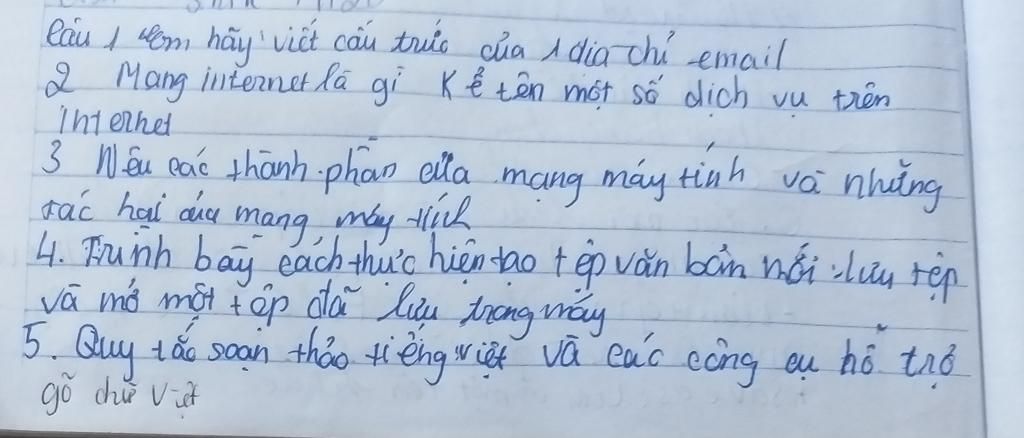 Câu 1 em hãy viết cấu trúc của 1 địa chỉ email
2 Mạng internet là gì Kể tên một số dịch vụ trên
internet
3 Nêu các thành phần của mạng máy tính và những
tác hại của mạng máy tính
4. Trình bày cách thực hiện tạo tệp văn bản mới, lưu tệp
và mở một tệp đã lưu trong máy
5. Quy tắc soạn thảo tiếng việt và các công cụ hỗ trợ
gõ chữ Việt